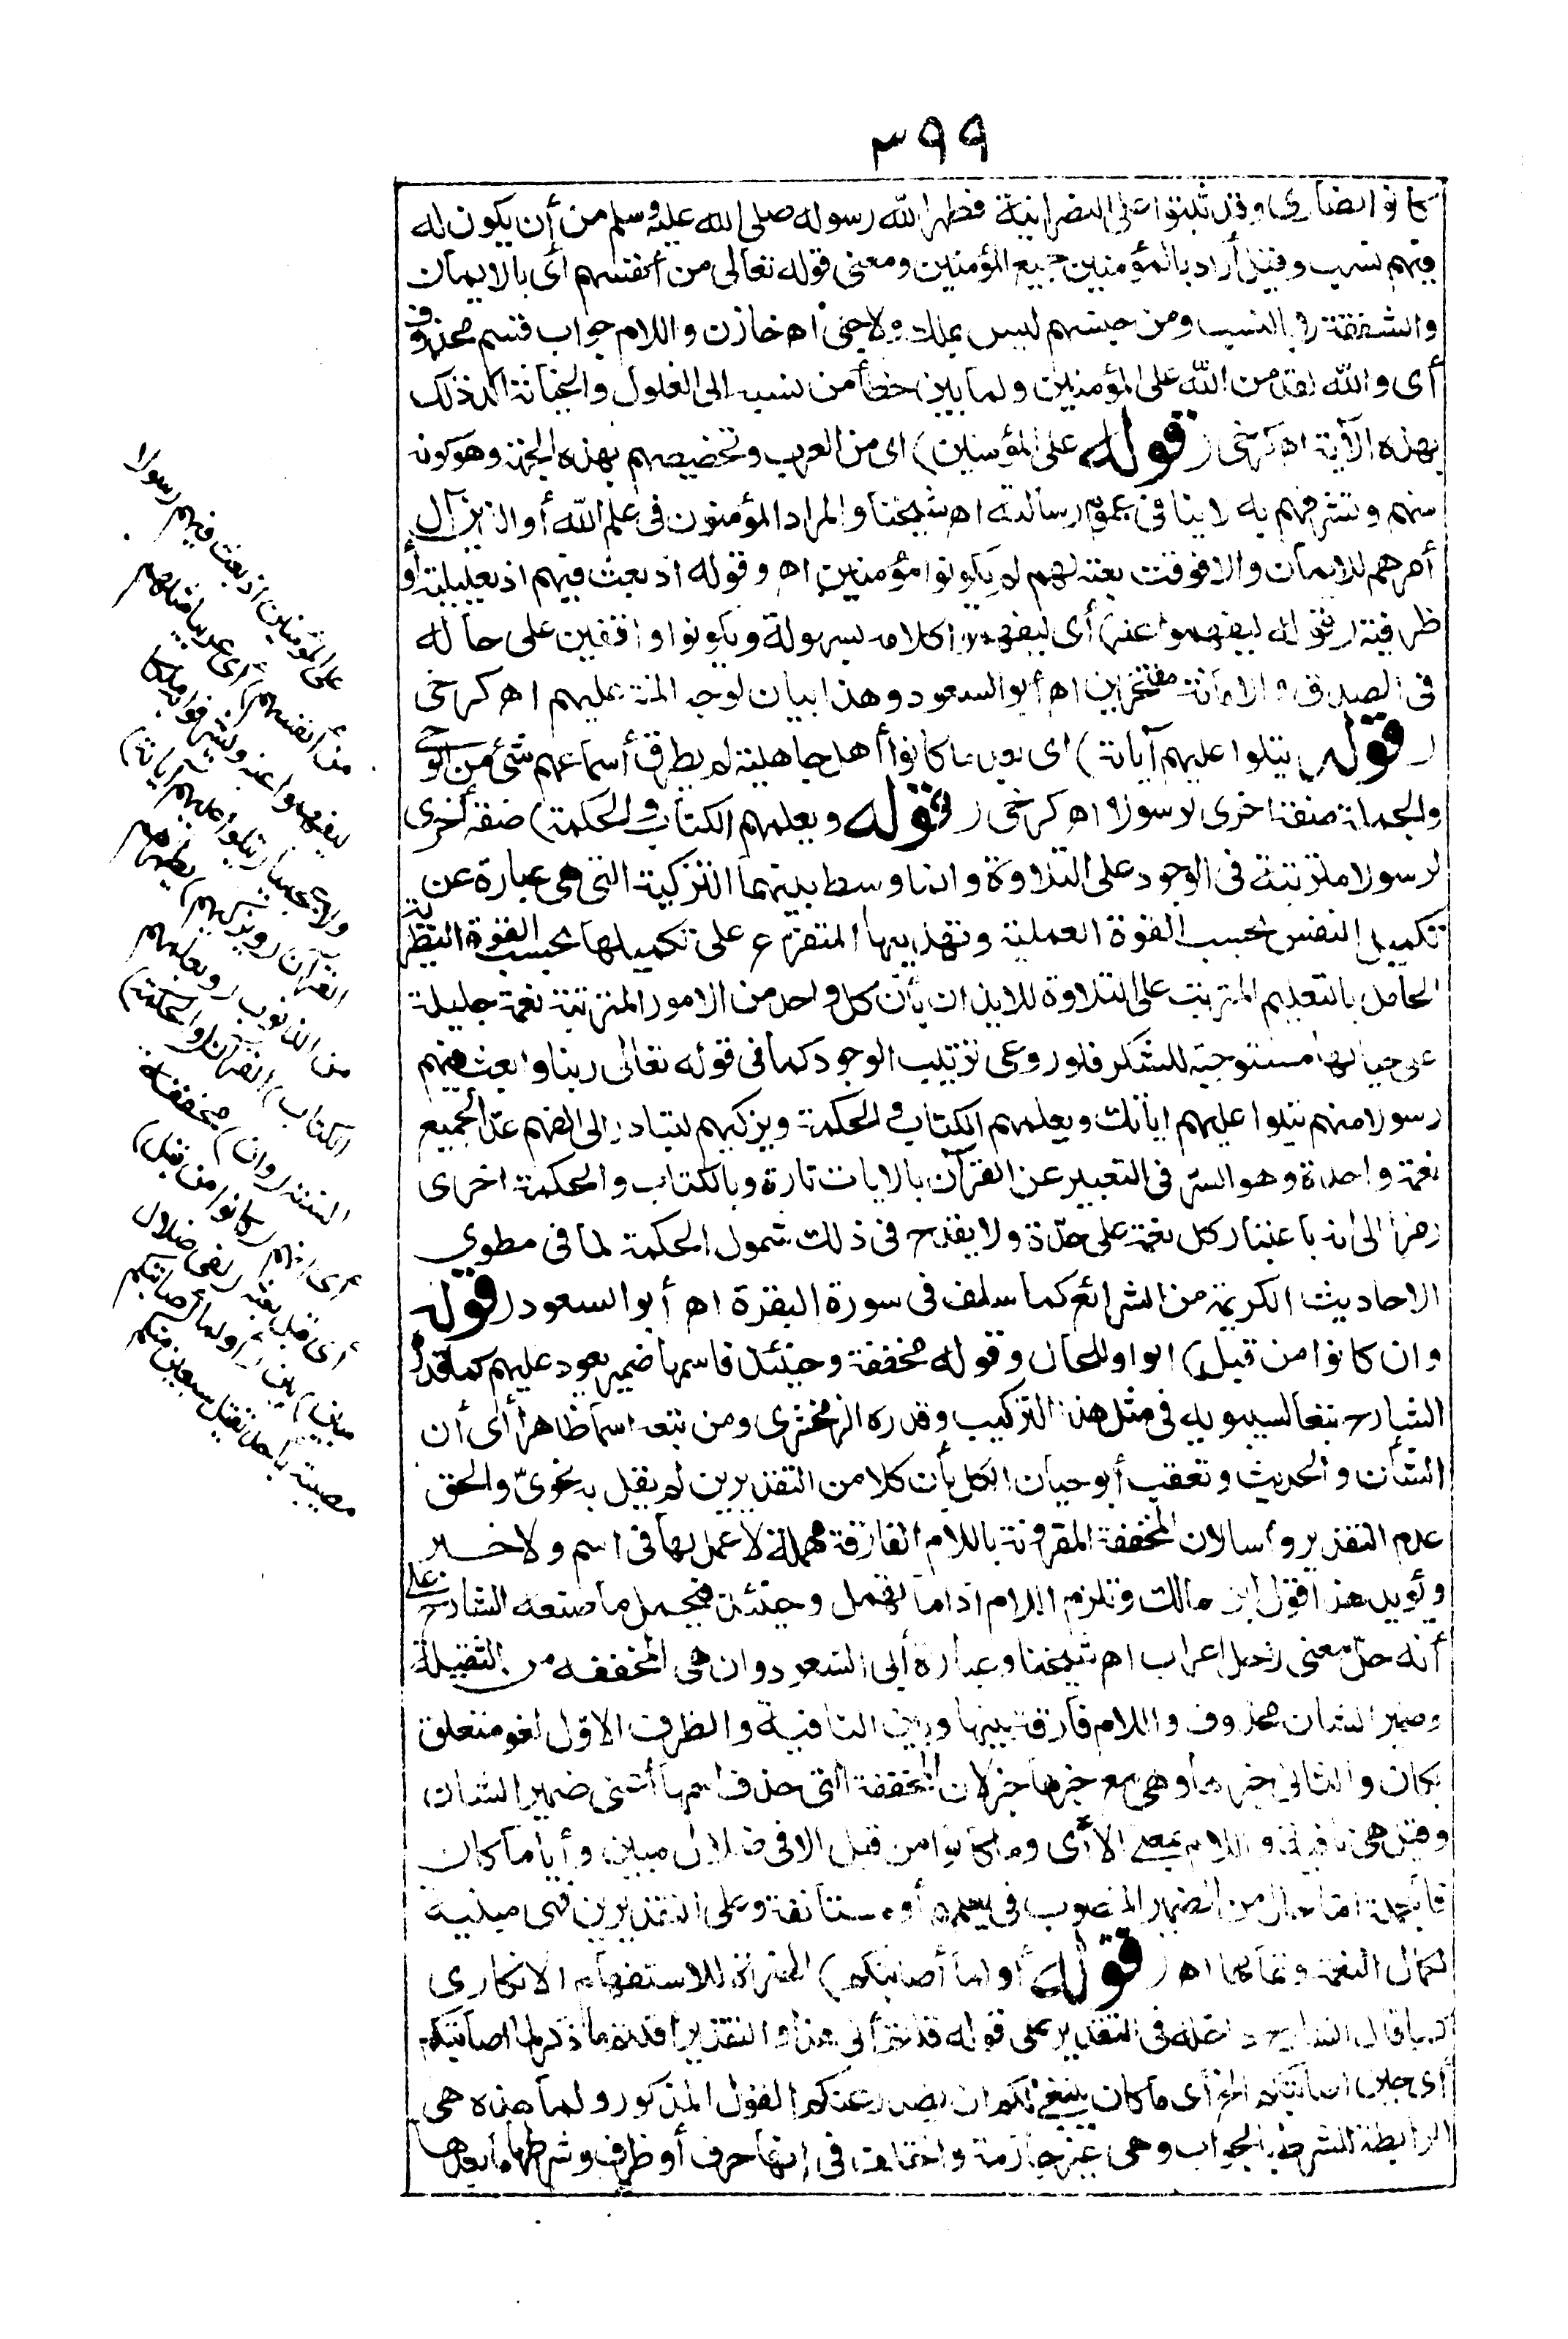 ٣٩٩
كانوا نصارى وقد ثبتوا على النصرانية فطهر الله رسوله صلى الله عليه وسلم من أن يكون له
فيهم نسب وقيل أراد بالمؤمنين جميع المؤمنين ومعنى قوله تعالى من أنفسهم أى بالايمان
والشفقة لا بالنسب ومن جنسهم ليس بملك ولا جنى اه خازن واللام جواب قسم محذوف
أى والله لقد من الله على المؤمنين ولما بين خطأ من نسبه الى الغلول والخيانة أكد ذلك
بهذه الآية اه كرخى (قوله على المؤمنين) اى من العرب وتخصيصهم بهذه الجهة وهو كونه
منهم وتشرفهم به لا ينافى عموم رسالته اه شيخنا والمراد المؤمنون فى علم الله أو الذين آل
أمرهم للايمان والا فوقت بعثه لهم لم يكونوا مؤمنين اه وقوله اذ بعث فيهم اذ تعليلية أو
ظرفية (قوله ليفهموا عنه) أى ليفهموا كلامه بسهولة ويكونوا واقفين على حاله
فى الصدق والامانة مفتخرين اه أبو السعود وهذا بيان لوجه المنة عليهم اه كرخى
(قوله يتلوا عليهم آياته) اى بعد ما كانوا أهل جاهلية لم يطرق أسماعهم شئ من الوحى
والجملة صفة اخرى لرسولا اه كرخى (قوله ويعلمهم الكتاب والحكمة) صفة أخرى
لرسولا مترتبة فى الوجود على التلاوة وانما وسط بينهما التزكية التى هى عبارة عن
تكميل النفس بحسب القوة العملية وتهذيبها المتفرع على تكميلها بحسب القوة النظرية
الحاصل بالتعليم المترتب على التلاوة للايذان بأن كل واحد من الامور المترتبة نعمة جليلة
على حيالها مستوجبة للشكر فلو روعى ترتيب الوجود كما فى قوله تعالى ربنا وابعث فيهم
رسولا منهم يتلوا عليهم اياتك ويعلمهم الكتاب والحكمة ويزكيهم لتبادر الى الفهم عد الجميع
نعمة واحدة وهو السر فى التعبير عن القرآن بالايات تارة وبالكتاب والحكمة اخرى
رمزا الى أنه باعتبار كل نعمة على حدة ولا يقدح فى ذلك شمول الحكمة لما فى مطوي
الاحاديث الكريمة من الشرائع كما سلف فى سورة البقرة اه أبو السعود (قوله
وان كانوا من قبل) الواو للحال وقوله مخففة وحينئذ فاسمها ضمير يعود عليهم كما قدر
الشارح تبعا لسيبويه فى مثل هذا التركيب وقدره الزمخشرى ومن تبعه اسما ظاهرا أى أن
الشأن والحديث وتعقب أبو حيان الكل بأن كلا من التقديرين لم يقل به نحوى والحق
عدم التقدير رأسا لان المخففة المقرونة باللام الفارقة مهملة لا عمل لها فى اسم ولا خبر
ويؤيد هذا قول ابن مالك وتلزم اللام اذا ما تهمل وحينئذ فيحمل ما صنعه الشارح على
أنه حل معنى لا حل اعراب اه شيخنا وعبارة أبى السعود وان هى المخففة من الثقيلة
وضمير الشان محذوف واللام فارقة بينها وبين النافية والظرف الاول لغو متعلق
بكان والثانى خبرها وهى مع خبرها خبر لان المخففة التى حذف اسمها أعنى ضمير الشان
وقيل هى نافية واللام بمعنى الا أى وما كانوا من قبل الا فى ضلال مبين وأيا ما كان
فالجملة اما حال من الضمير المنصوب فى يعلمهم أو مستأنفة وعلى التقديرين فهى مبينة
لكمال النعمة وتمامها اه (قوله أو لما أصابتكم) الهمزة للاستفهام الانكارى
كما قال الشارح داخلة فى التقدير على قوله قلتم أنى هذا والتقدير أقلتم ما ذكر لما اصابتكم
أى حين اصابتكم الخ أى ما كان ينبغى لكم ان يصدر عنكم القول المذكور ولما هذه هى
الرابطة للشرط بالجواب وهى غير جازمة واختلف فى انها حرف أو ظرف وشرطها ما بعدها
على المؤمنين اذ بعث فيهم رسولا
من أنفسهم) أى عربيا مثلهم
ليفهموا عنه ويشرفوا به لا ملكا
ولا عجميا (يتلوا عليهم آياته)
القرآن (ويزكيهم) يطهرهم
من الذنوب (ويعلمهم
الكتاب) القرآن (والحكمة)
السنة (وان) مخففة
أى انهم (كانوا من قبل)
أى قبل بعثه (لفى ضلال
مبين) بين (أو لما أصابتكم
مصيبة) بأحد بقتل سبعين منكم